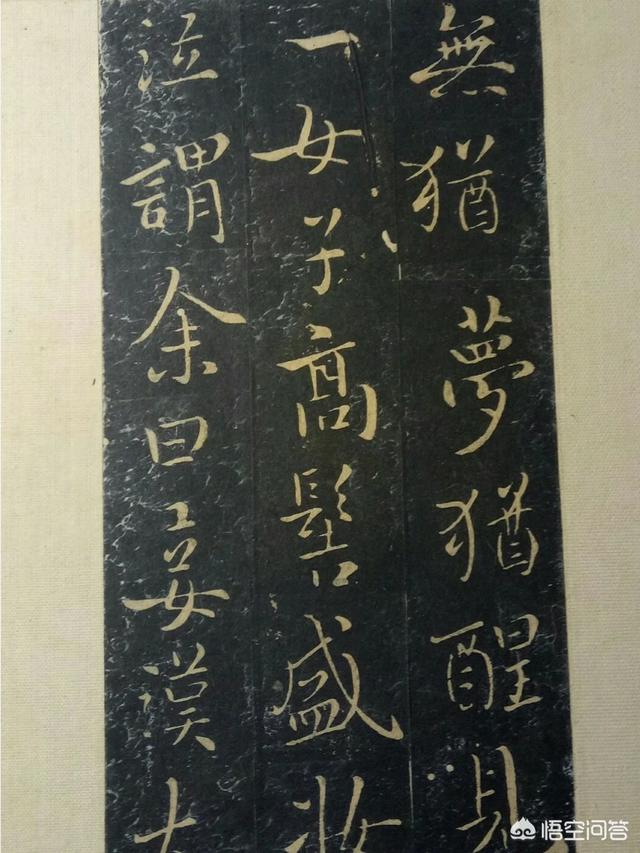 無猶夢猶醒見
一女子高髻盛妝
泣謂余曰妾漢
悟空问答